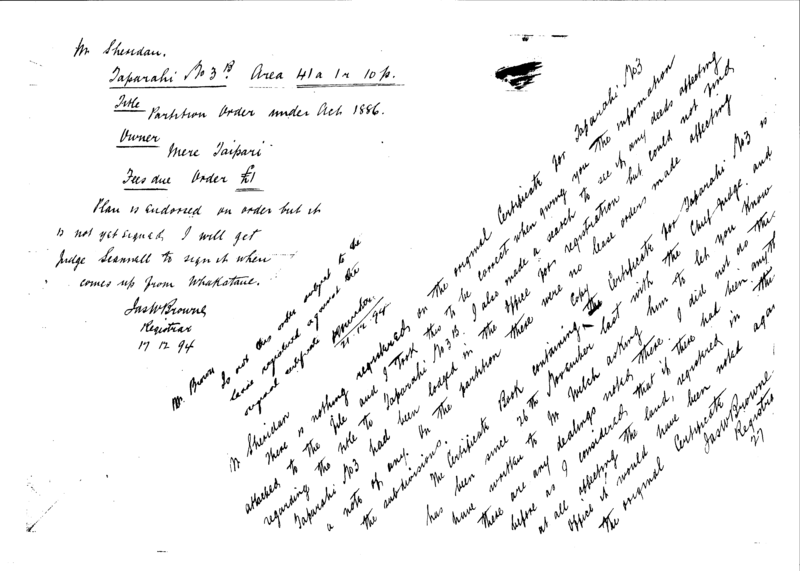 Mr Sheridan.
Taparahi No 3B. Area 41a 1r 10p.
Title Partition Order under Act 1886.
Owner
Mere Taipari
Fees due Order £1
Plan is endorsed on order but it
is not yet signed. I will get
Judge Scannell to sign it when
comes up from Whakatane.
Jas W Browne
Registrar
17 12 94
Mr Browne Is not this order subject to the
lease registered against the
original certificate
21.12.94
Mr Sheridan
There is nothing registered on the original Certificate for Taparahi No 3
attached to the file and I took this to be correct when giving you the information
regarding the title to Taparahi No 3B. I also made a search to see if any deeds affecting
Taparahi No 3 had been lodged in the Office for registration but could not find
a note of any. On the partition there were no lease orders made affecting
the subdivisions.
The Certificate Book containing the copy Certificate for Taparahi No 3 is
has been since 26th November last with the Chief Judge and
have written to Mr Welch asking him to let you know
there are any dealings noted there. I did not do this
before as I considered that if there had been anyth
at all affecting the land, registered in the
Office it would have been noted agai
the original Certificate
Jas W Browne
Registra
27